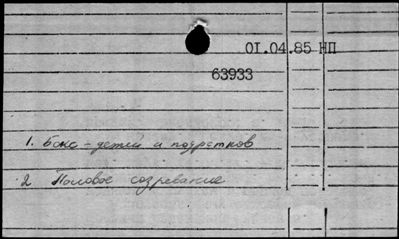 01.04.85 НП
63933
1. Бокс - детей и подростков
2 Половое созревание